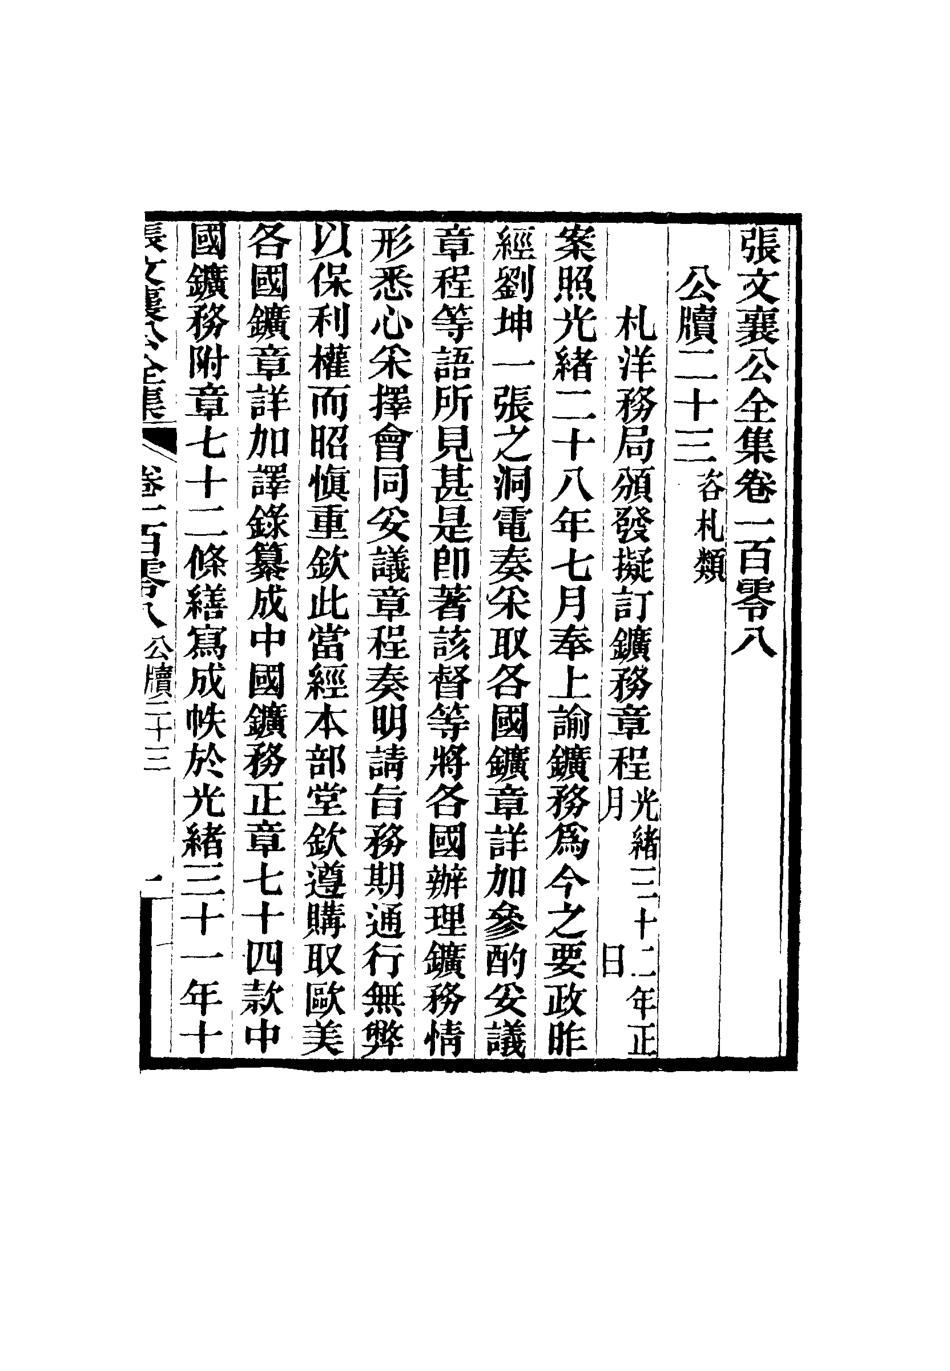 張文襄公全集卷一百零八
公牘二十三咨札類
札洋務局頒發擬訂鑛務章程光緒三十二年正月　日
案照光緒二十八年七月奉上諭鑛務爲今之要政昨
經劉坤一張之洞電奏采取各國鑛章詳加參酌妥議
章程等語所見甚是卽著該督等將各國辦理鑛務情
形悉心采擇會同妥議章程奏明請旨務期通行無弊
以保利權而昭愼重欽此當經本部堂欽遵購取歐美
各國鑛章詳加譯錄纂成中國鑛務正章七十四款中
國鑛務附章七十二條繕寫成帙於光緒三十一年十
張文襄公全集　卷一百零八　公牘二十三　一